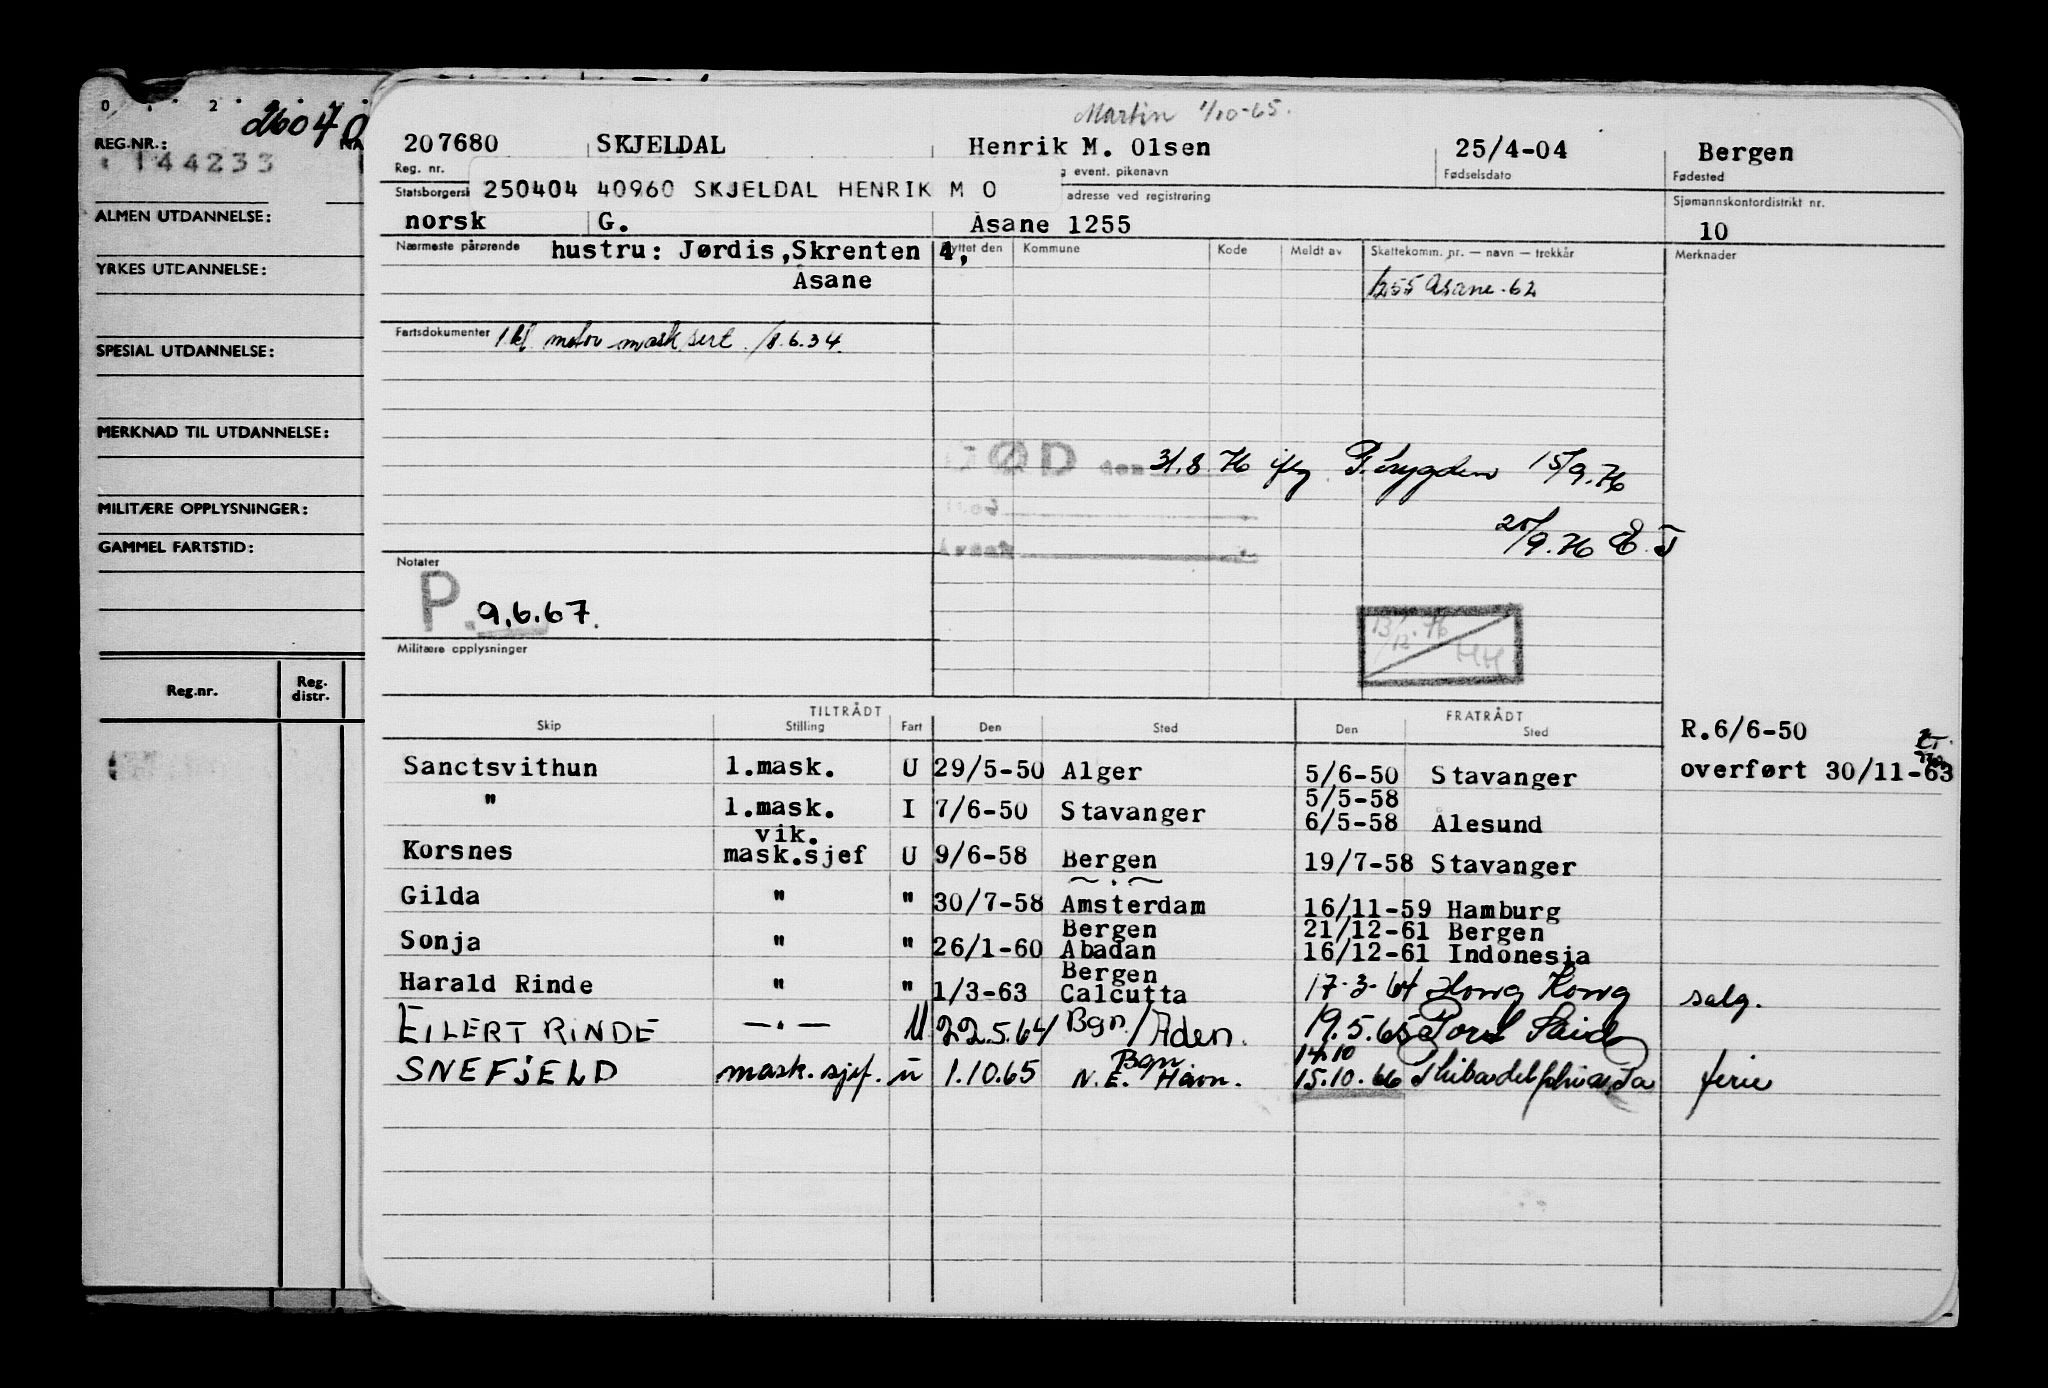 0 1 2
26070
REG.NR.:
NA
144233
ALMEN UTDANNELSE:
YRKES UTDANNELSE:
SPESIAL UTDANNELSE:
MERKNAD TIL UTDANNELSE:
MILITÆRE OPPLYSNINGER:
GAMMEL FARTSTID:
Reg.nr. Reg. distr.
Martin 1/10-65.
207680 SKJELDAL Henrik M. Olsen 25/4-04 Bergen
Reg. nr. event. pikenavn Fødselsdato Fødested
Statsborgersk 250404 40960 SKJELDAL HENRIK M O adresse ved registrering Sjømannskontordistrikt nr.
norsk G. Åsane 1255 10
Nærmeste pårørende hustru: Jørdis,Skrenten 4, yttet den Kommune Kode Meldt av Skattekomm. nr. — navn — trekkår Merknader
Åsane 1255 Åsane-62
Fartsdokumenter 1 kl motor mask sert. /8.6.34.
DØD den 31.8 76 iflg P.trygden 15/9.76
Sted
Årsak
25/9.76 E.T
Notater
P. 9.6.67.
13/12.76 HH
Militære opplysninger
TILTRÅDT FRATRÅDT
Skip Stilling Fart Den Sted Den Sted
R.6/6-50
Sanctsvithun 1.mask. U 29/5-50 Alger 5/6-50 Stavanger overført 30/11-63
" 1.mask. I 7/6-50 Stavanger 5/5-58
6/5-58 Ålesund
Korsnes vik. mask.sjef U 9/6-58 Bergen 19/7-58 Stavanger
Gilda " " 30/7-58 Amsterdam 16/11-59 Hamburg
Sonja " " 26/1-60 Bergen Abadan 21/12-61 Bergen
16/12-61 Indonesia
Harald Rinde " " 1/3-63 Bergen Calcutta 17-3-64 Hong Kong salg.
EILERT RINDE —"— U 22.5.64 Bgn/Aden. 19.5.65 Port Said
SNEFJELD mask.sjef. u 1.10.65 Bgn N.E. Havn. 14.10
15.10.66 Philadelphia, Pa ferie